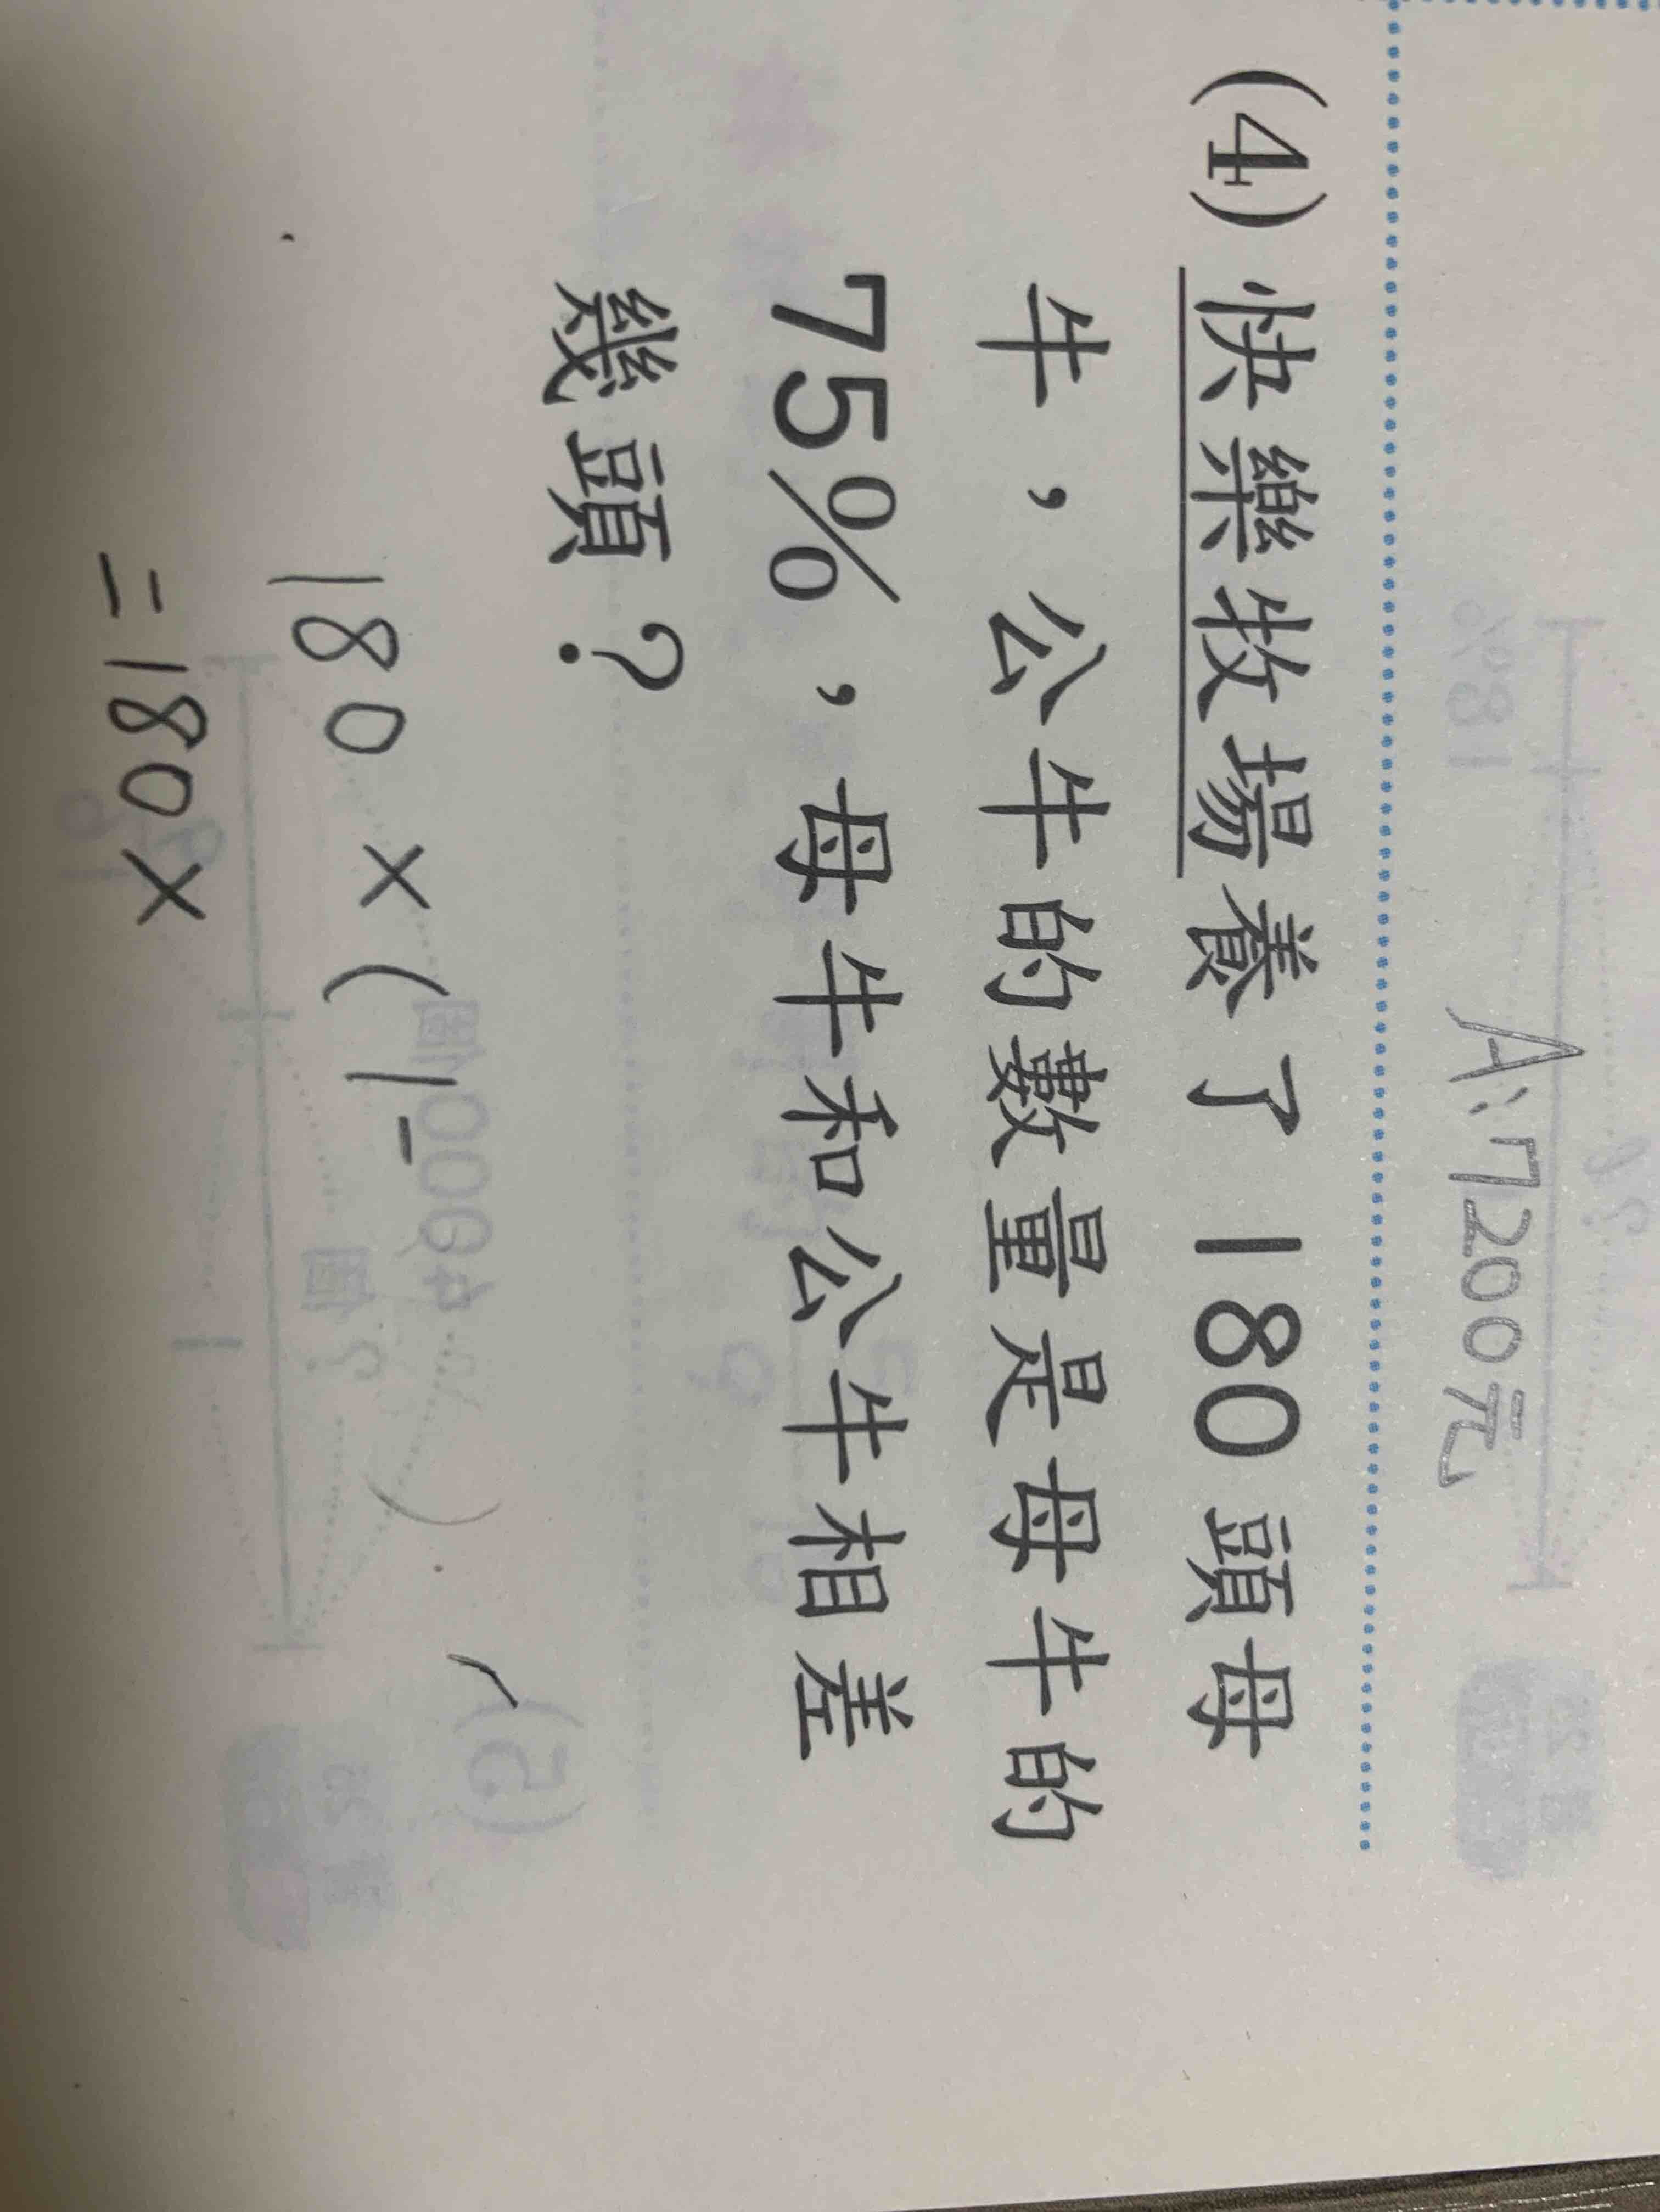 A:7200元
(4)快樂牧場養了180頭母
牛，公牛的數量是母牛的
75%，母牛和公牛相差
幾頭？
180×(1-        )
=180×